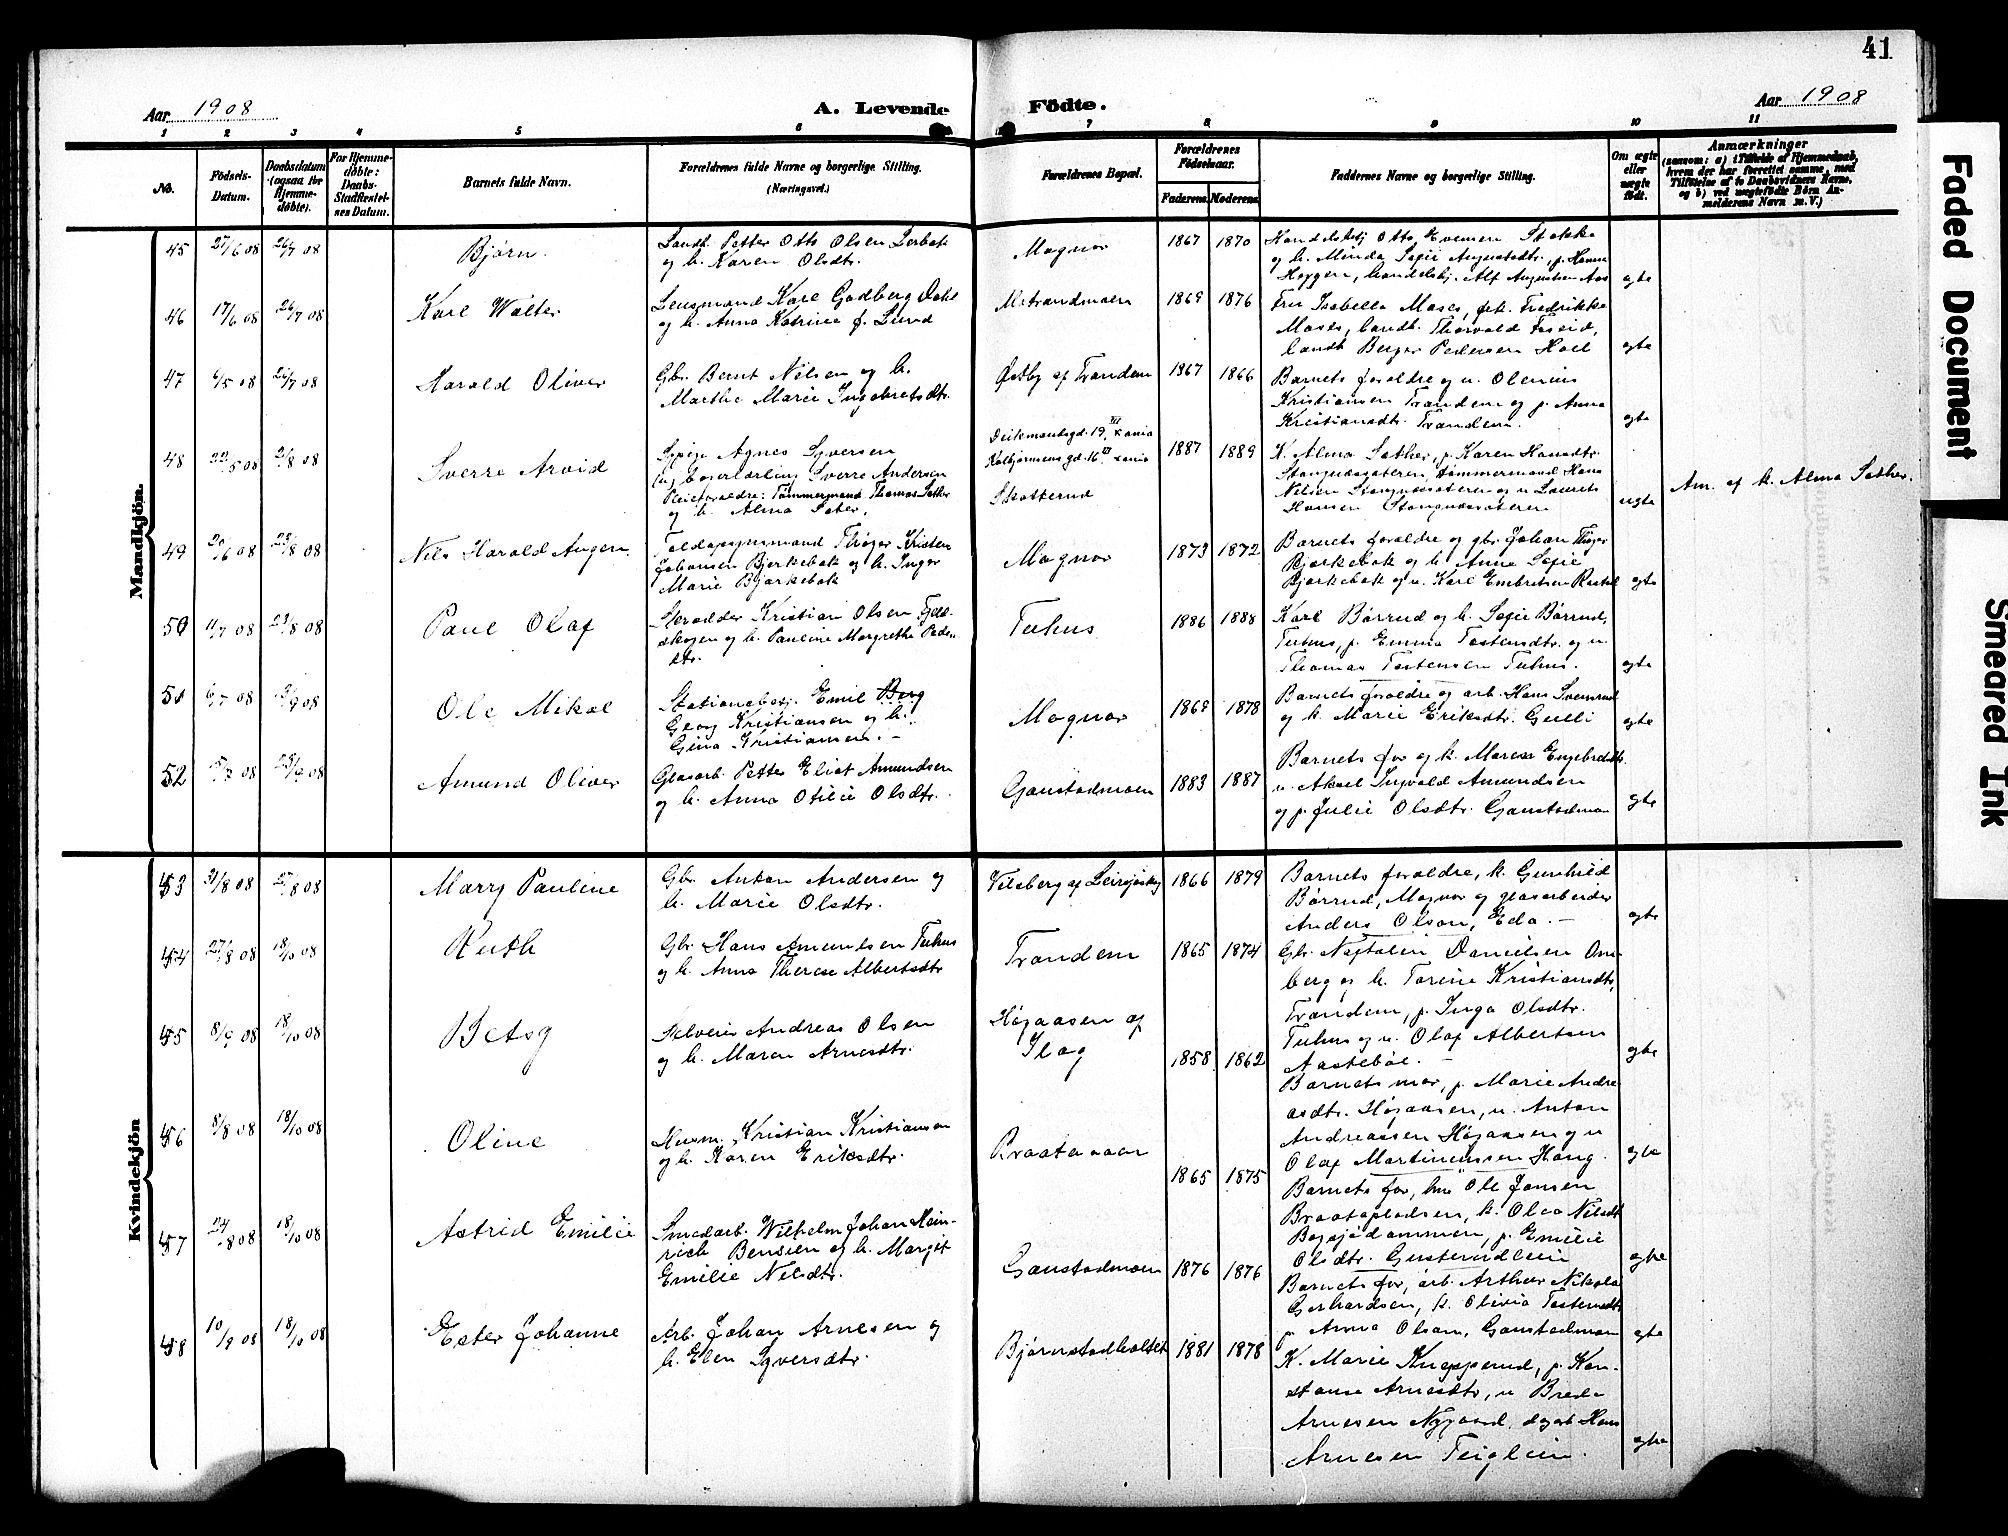 41
Aar 1908
A. Levende
Födte.
Aar 1908
1 2 3 4 5 6 7 8 9 10 11
No.
Födsels-
Datum.
Daabsdatum
(ogsaa for
Hjemme-
døbte).
For Hjemme-
døbte:
Daabs-
Stadfæstel-
ses Datum.
Barnets fulde Navn.
Forældrenes fulde Navne og borgerlige Stilling.
(Næringsvei.)
Forældrenes Bopæl.
Forældrenes
Födselsaar.
Faderens Moderens
Faddernes Navne og borgerlige Stilling.
Om ægte
eller
uægte
født.
Anmærkninger
(saasom: a) i Tilfælde af Hjemmedaab,
hvem der har forrettet samme, med
Tilföielse af to Daabsvidners Navne,
og b) ved uægtefødte Börn An-
melderens Navn m. V.)
Mandkjön.
45 27/6 08 26/7 08 Bjørn.
Landh. Petter Otto Olsen Lerbak
og h. Karen Olsdtr.
Magnor 1867 1870
Handelsbtj Otto Evensen Stokke
og h. Minda Sofie Augustsdtr., p. Hanna
Hoygen, handelsbj. Alf Augustsen Aas
egte
46 17/6 08 26/7 08 Karl Walter
Lensmand Karl Godberg Dahl
og h. Anna Katrine f. Lund
Mstrandmoen 1869 1876
Fru Isabella Moses, frk. Fredrikke
Moses, landh. Thorvald Foseid,
landh Berger Pedersen Hoel
egte
47 6/5 08 26/7 08 Harald Oliver
Gbr. Bernt Nilsen og h.
Marthe Marie Ingebretsdtr.
Østby af Trandem 1867 1866
Barnets foraldre og u. Olenius
Kristiansen Trandem og p. Anna
Kristiansdtr. Trandem.
egte
48 22/5 08 2/8 08 Sverre Arvid
Sypige Agnes Syversen
(u) Bagerlærling Sverre Andersen
Pleieforaldre: Tømmermand Thomas Sather
og h. Alma Sater.
Deikmansgd. 19, VII Kania
Kolbjørnsens gd. 16 VI Kania
Skotterud
1887 1889
K. Alma Sather, p. Karen Hansdtr.
Stangnæssæteren, tømmermand Hans
Nilsen Stangnæssæteren og u Laurits
Hansen Stangnæssæteren
uegte
Am. af k. Alma Sather.
49 20/6 08 23/8 08 Nils Harald Jørgen
Toldopsynsmand Thøger Kristen
Johansen Bjerkebak og h. Inger
Marie Bjørkebak
Magnor 1873 1872
Barnets foraldre og gbr Johan Thøger
Bjørkebak og h Anna Sofie
Bjørkebak og u. Karl Embretsen Rastad
egte
50 11/7 08 23/8 08 Paul Olaf
Skradder Kristian Olsen Fjeld-
skogen og h. Pauline Margrethe Peders-
dtr.
Tuhus 1886 1888
Karl Børrud og h. Sofie Børrud,
Tuhus, p. Emma Tostensdtr. og u.
Thomas Tostensen Tuhus.
egte
51 6/7 08 13/9 08 Ole Mikal
Stationsbetj. Emil Berg
Georg Kristiansen og h.
Gina Kristiansen. -
Magnor 1869 1878
Barnets foraldre og arb. Hans Svensrud
og k. Marie Eriksdtr. Gulli
egte
52 15/7 08 25/9 08 Amund Oliver
Glasarb. Petter Eliot Amundsen
og h. Anna Otilie Olsdtr.
Gaustadmoen 1883 1887
Barnets far og k. Maren Engebretsdtr.
u. Aksel Ingvald Amundsen
og p. Julie Olsdtr. Gaustadmoen
egte
Kvindekjön
53 31/8 08 27/8 08 Marry Pauline
Gbr. Anton Andersen og
h. Marie Olsdtr.
Vilsberg af Leirsjøskog 1866 1879
Barnets foraldre, k. Gunhild
Børrud, Magnor og glasarbeider
Anders Olson, Eda. -
egte
54 27/8 08 18/10 08 Ruth
Gbr. Hans Amundsen Tuhus
og h. Anna Therese Albertsdtr
Trandem 1865 1874
Gbr. Naftalin Danielsen Om-
berg og h. Torine Kristiansdtr.,
Trandem, p. Inga Olsdtr.
Tuhus og u. Olaf Albertsen
Aastebøl. -
egte
55 8/9 08 18/10 08 Betsy
Selveier Andreas Olsen
og h. Maren Arnesdtr.
Høgaasen af
Skog
1858 1862
Barnets mor, p. Marie Andre
asdtr. Høgaasen, u. Anton
Andreassen Høgaasen og u
Olaf Martiniussen Haug.
egte
56 8/8 08 18/10 08 Oline
Husm. Kristian Kristiansen
og h. Karen Eriksdtr.
Braatanaar 1865 1875
Barnets far, hus Ole Jansen
Braatapladsen, k. Olea Nilsdtr
Bogsjødammen, p. Emilie
Olsdtr. Gusterudlien
egte
57 24/8 08 18/10 08 Astrid Emilie
Smedarb. Wilhelm Johan Hein-
rich Bensien og h. Margit
Emilie Nilsdtr.
Gaustadmoen 1876 1876
Barnets far, arb. Arthur Nikolai
Gerhardsen, k. Olivia Tostensdtr
p. Anna Olsen, Gaustadmoen
egte
58 10/9 08 18/10 08 Ester Johanne
Arb. Johan Arnesen og
h. Elen Syversdtr.
Bjørnstadholtet 1881 1878
K. Marie Knapperud, p. Kon-
stanse Arnesdtr, u Brede
Arnesen Nygaard, dagarb Hans
Arnesen Teiglien.
egte
Faded Document
Smeared Ink